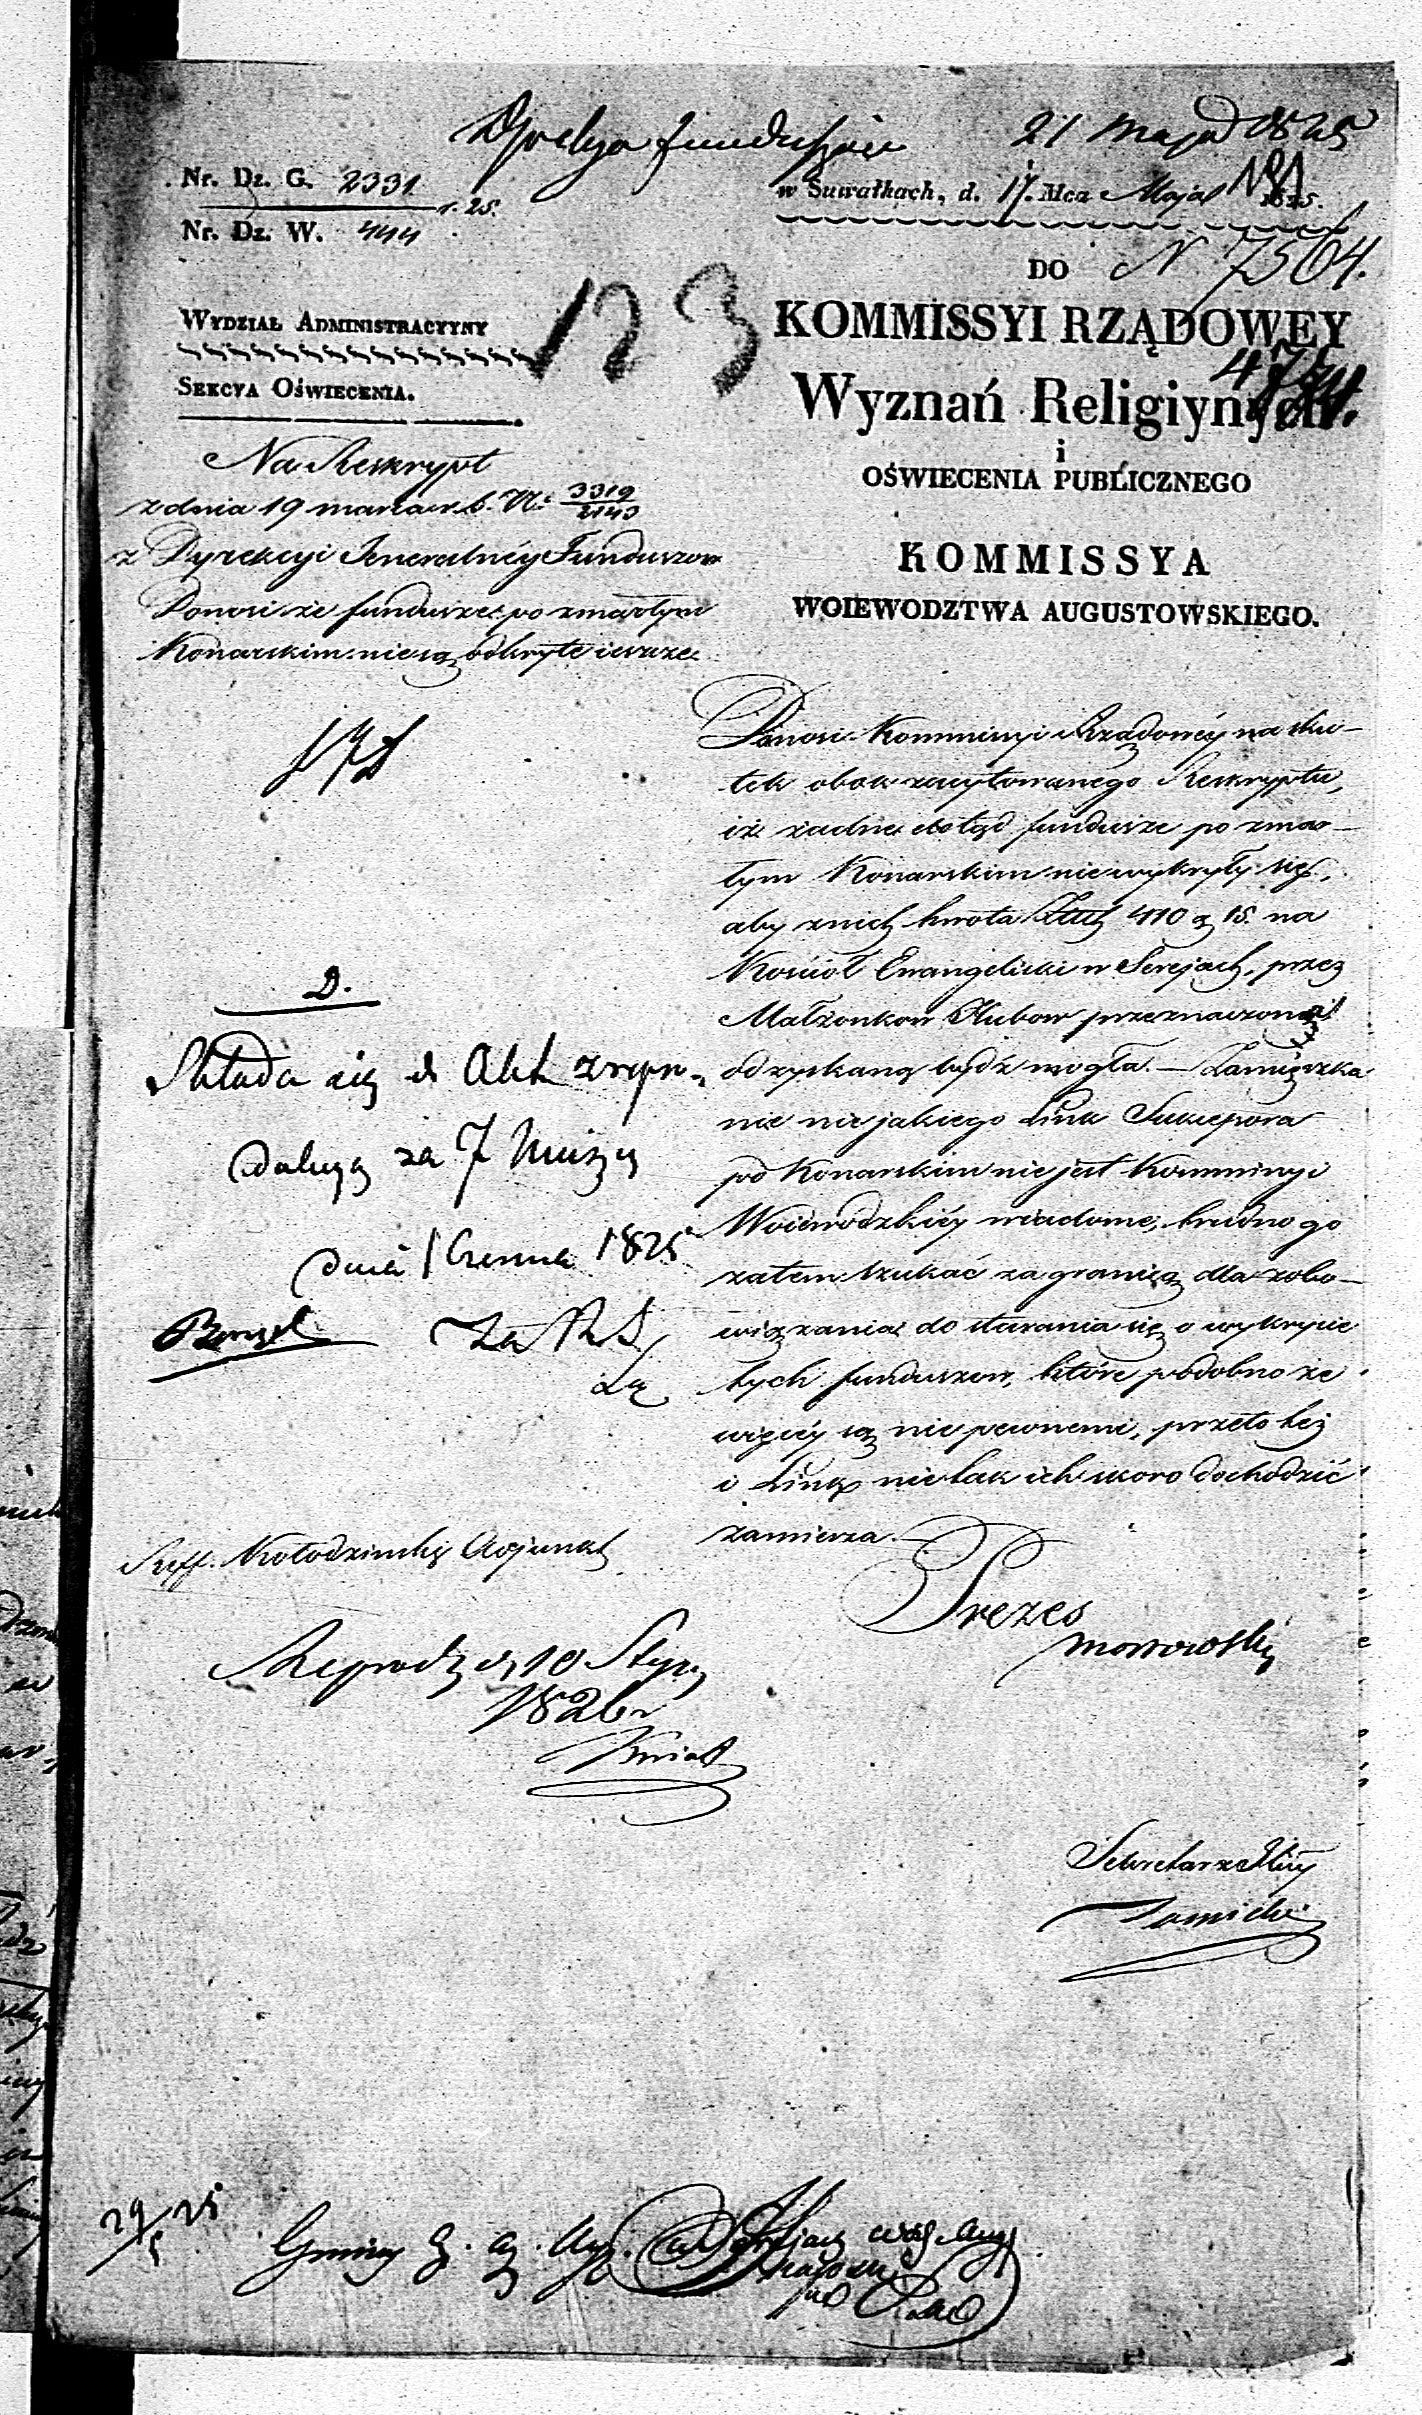 Dyrekcya funduszów 21 Maja 1825
Nr. Dz. G. 2331
r. 25.
Nr. Dz. W. 444
w Suwałkach, d. 17. Mca Maja 1825.
181
DO N 7504.
123
WYDZIAŁ ADMINISTRACYYNY
SEKCYA OŚWIECENIA.
KOMMISSYI RZĄDOWEY
Wyznań Religiynych
i
OŚWIECENIA PUBLICZNEGO
KOMMISSYA
WOIEWODZTWA AUGUSTOWSKIEGO.
Na Reskrypt
z dnia 19 marca r. b. Nr 3319/2143
z Dyrekcyi Jeneralnéy Funduszow
Donosi że fundusze po zmarłym
Konarskim nie są odkryte ieszcze
Donosi Kommissyi Rządowéy na sku-
tek obok zacytowanego Reskryptu,
iż żadne dotąd fundusze po zmar-
łym Konarskim nie wykryły się,
aby z nich kwota 410 g 15. na
Kościoł Ewangelicki w Serejach, przez
Małżonkow Kubow przeznaczona
odzyskaną bydź mogła. — Zamieszka
nie niejakiego Link Sukcessora
po Konarskim nie jest Kommissyi
Woiewodzkiéy wiadome, trudno go
zatem szukać za granicą dla zobo-
wiązania do starania się o wykrycie
tych funduszow, które podobno że
więcéy są niepewnemi, przeto też
i Link nie tak ich skoro dochodzić
zamierza.
Prezes
Sekretarz Jlny
Zamicki
D.
Składa się do Akt z repro-
dukcyą za 7 Mcy
dnia 1 Czerwca 1825
Za
Reff. Kołodzinski Adjunkt
Reprodk d, 10 Stycz
1826 r
29/5 25
Gminy